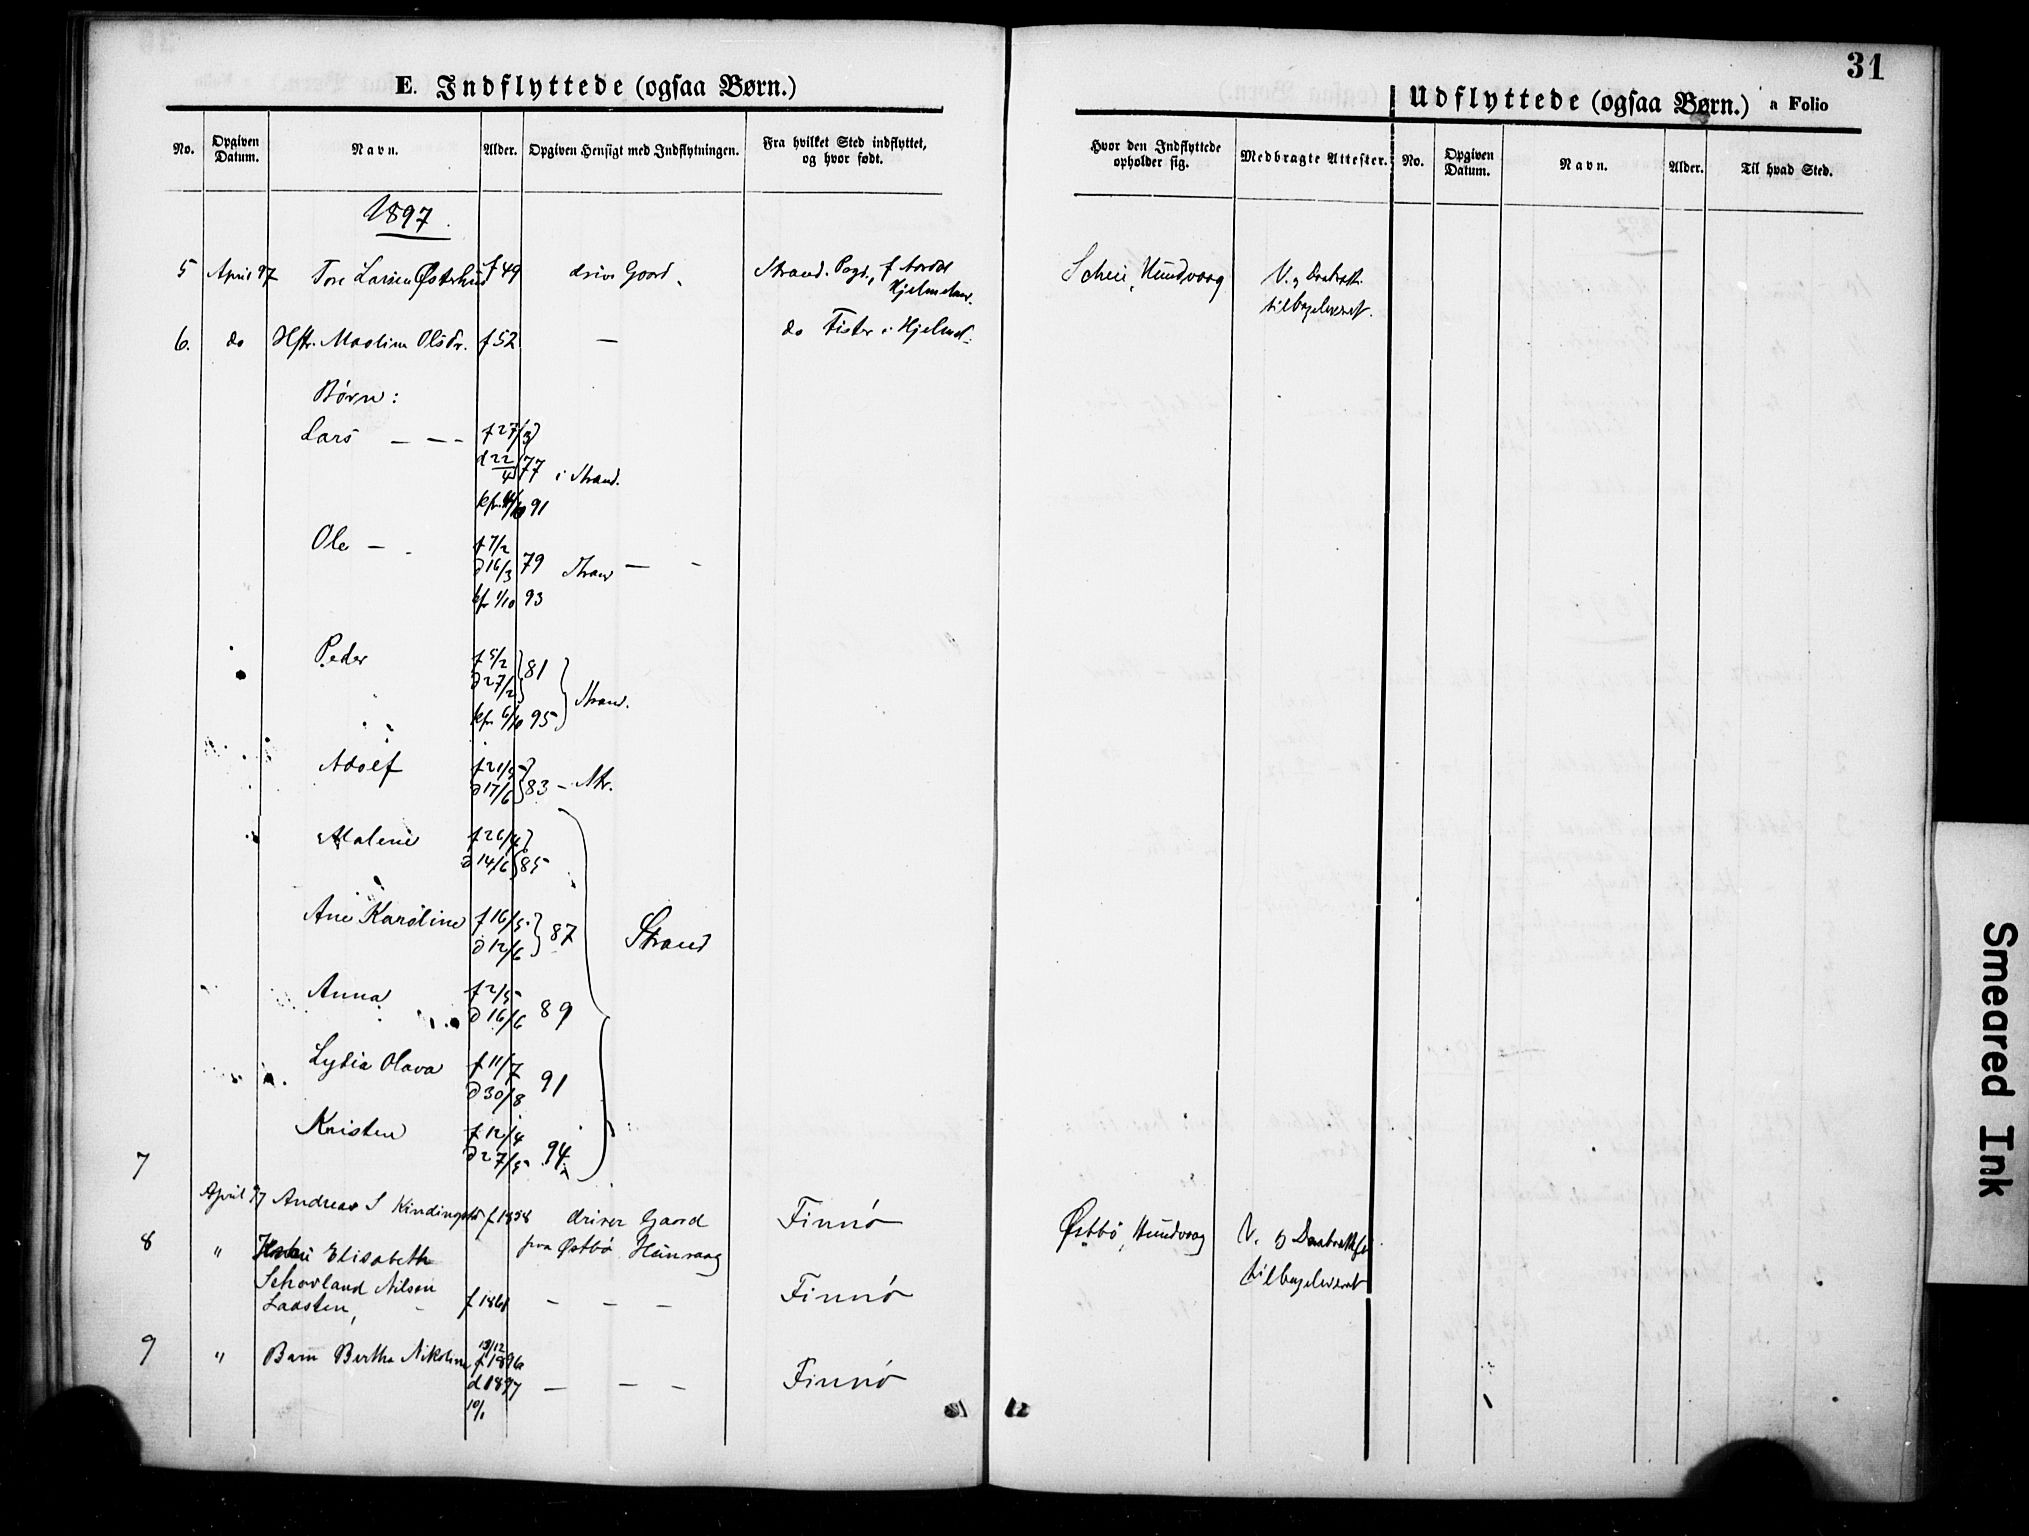 31
E. Indflyttede (ogsaa Børn.)
Udflyttede (ogsaa Børn.) a Folio
No. Opgiven Datum. Navn. Alder. Opgiven Hensigt med Indflytningen. Fra hvilket Sted indflyttet, og hvor født. Hvor den Indflyttede opholder sig. Medbragte Attester. No. Opgiven Datum. Navn. Alder. Til hvad Sted.
1897.
5 April 97 Tore Larsen Østerhus f 49 driver Gaard. Strand. f Hjelmeland. Scheie, Hundvaag V. og Daabsatt. tilbageleveret.
6. do Hstr. Olsdr. f 52 — do Fister i Hjelmel.
Børn:
Lars — — - f 27/3
d 22/4 77 i Strand.
kfr. 91
Ole — - f 7/2
d 16/3 79 Strand — -
kfr 1/10 93
Peder f 5/2
d 27/2 81
kfr 6/10 95 Strand.
Adolf f 21/5
d 17/6 83 – Str.
Malene f 26/4
d 14/6 85
Ane Karoline f 16/5
d 12/6 87 Strand
Anna f 2/5
d 16/6 89
Lydia Olava f 11/7
d 30/8 91
Kristen f 12/4
d 27/5 94
7 April 97 Andreas S Kindingstad f 1858 driver Gaard Finnø Østbø, Hundvaag V. og Daabsattest
8 " Elisabeth fra Østbø Hunvaag tilbageleveret
Schovland Nilsen
Laasten, f 1861 — — — Finnø
9 " Barn Bertha Nikoline 13/12
f 1896 Finnø
d 1897 — — —
10/1
Smeared Ink